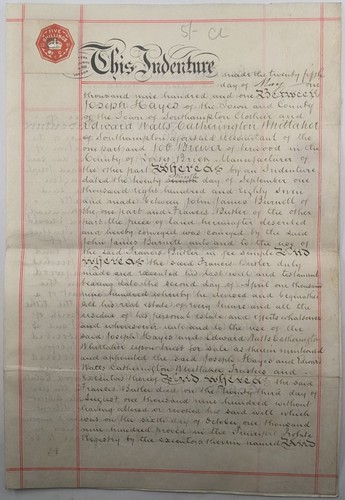 5/- Cl
FIVE SHILLINGS
This Indenture made the twenty fifth
day of May one
thousand nine hundred and one Between
Joseph Hayes of the Town and County
of the Town of Southampton Clothier and
Edward Watts Catherington Whittaker
of Southampton aforesaid Accountant of the
one part and Job Brewer of in the
County of Brick Manufacturer of
the other part Whereas by an Indenture
dated the twenty day of September one
thousand eight hundred and eighty seven
and made between John James Burnett of
the one part and Francis Butler of the other
part the piece of land hereinafter described
and hereby conveyed was conveyed by the said
John James Burnett unto and to the use of
the said Francis Butler in fee simple And
whereas the said Francis Butler duly
made and executed his last will and testament
bearing date the second day of April one thousand
nine hundred whereby he devised and bequeathed
all his real estate of every tenure and all the
residue of his personal estate and effects whatsoever
and wheresoever unto and to the use of the
said Joseph Hayes and Edward Watts Catherington
Whittaker upon trust for sale as therein mentioned
and appointed the said Joseph Hayes and Edward
Watts Catherington Whittaker Trustees and
Executors thereof And whereas the said
Francis Butler died on the twenty third day of
August one thousand nine hundred without
having altered or revoked his said will which
was on the sixth day of October one thousand
nine hundred proved in the Principal Probate
Registry by the executors therein named And